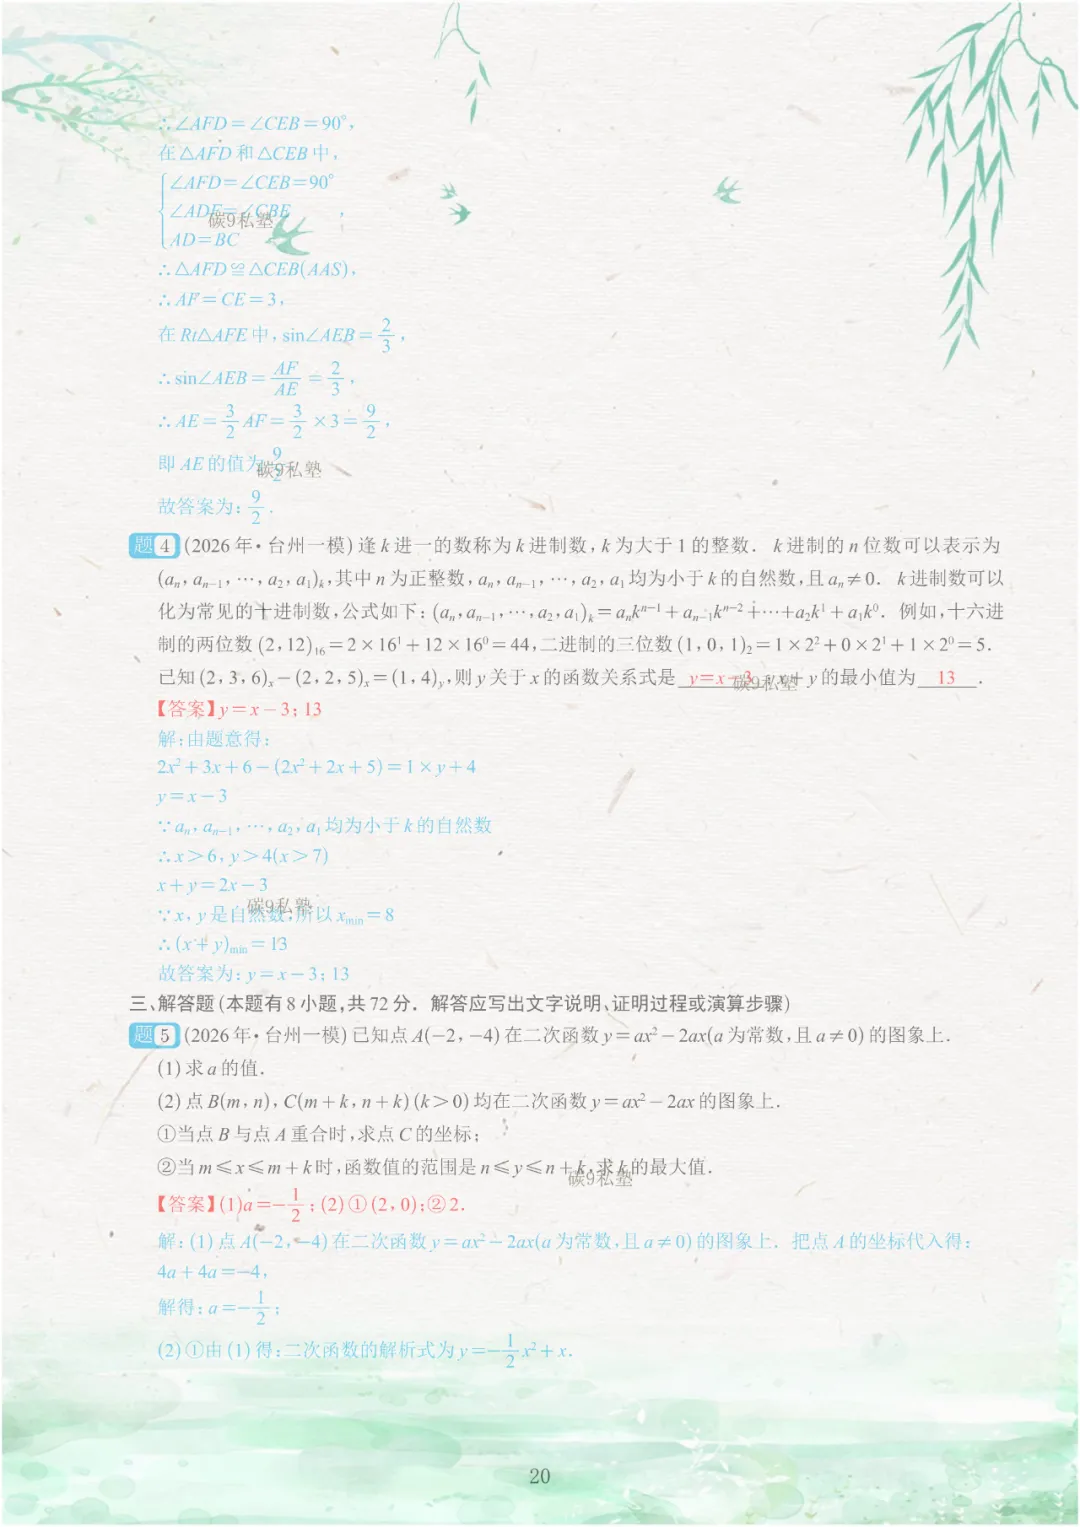 ∴∠AFD=∠CEB=90°,
在△AFD和△CEB中,
∠AFD=∠CEB=90°
∠ADF=∠CBE ,
碳9私塾
AD=BC
∴△AFD≌△CEB(AAS),
∴AF=CE=3,
在Rt△AFE中,sin∠AEB=2/3,
∴sin∠AEB=AF/AE=2/3,
∴AE=3/2AF=3/2×3=9/2,
即AE的值为9/2
碳9私塾
故答案为:9/2.
题4 (2026年•台州一模)逢k进一的数称为k进制数,k为大于1的整数. k进制的n位数可以表示为
(aₙ,aₙ₋₁,⋯,a₂,a₁)ₖ,其中n为正整数,aₙ,aₙ₋₁,⋯,a₂,a₁均为小于k的自然数,且aₙ≠0. k进制数可以
化为常见的十进制数,公式如下:(aₙ,aₙ₋₁,⋯,a₂,a₁)ₖ=aₙkⁿ⁻¹+aₙ₋₁kⁿ⁻²+⋯+a₂k¹+a₁k⁰. 例如,十六进
制的两位数(2,12)₁₆=2×16¹+12×16⁰=44,二进制的三位数(1,0,1)₂=1×2²+0×2¹+1×2⁰=5.
已知(2,3,6)ₓ-(2,2,5)ₓ=(1,4)ᵧ,则y关于x的函数关系式是 y=x-3 ,x+y的最小值为 13 .
碳9私塾
【答案】y=x-3;13
解:由题意得:
2x²+3x+6-(2x²+2x+5)=1×y+4
y=x-3
∵aₙ,aₙ₋₁,⋯,a₂,a₁均为小于k的自然数
∴x>6,y>4(x>7)
x+y=2x-3
碳9私塾
∵x,y是自然数,所以xmin=8
∴(x+y)min=13
故答案为:y=x-3;13
三、解答题(本题有8小题,共72分. 解答应写出文字说明、证明过程或演算步骤)
题5 (2026年•台州一模)已知点A(-2,-4)在二次函数y=ax²-2ax(a为常数,且a≠0)的图象上.
(1)求a的值.
(2)点B(m,n),C(m+k,n+k)(k>0)均在二次函数y=ax²-2ax的图象上.
①当点B与点A重合时,求点C的坐标;
②当m⩽x⩽m+k时,函数值的范围是n⩽y⩽n+k,求k的最大值.
碳9私塾
【答案】(1)a=-1/2;(2)①(2,0);②2.
解:(1)点A(-2,-4)在二次函数y=ax²-2ax(a为常数,且a≠0)的图象上. 把点A的坐标代入得:
4a+4a=-4,
解得:a=-1/2;
(2)①由(1)得:二次函数的解析式为y=-1/2x²+x.
20